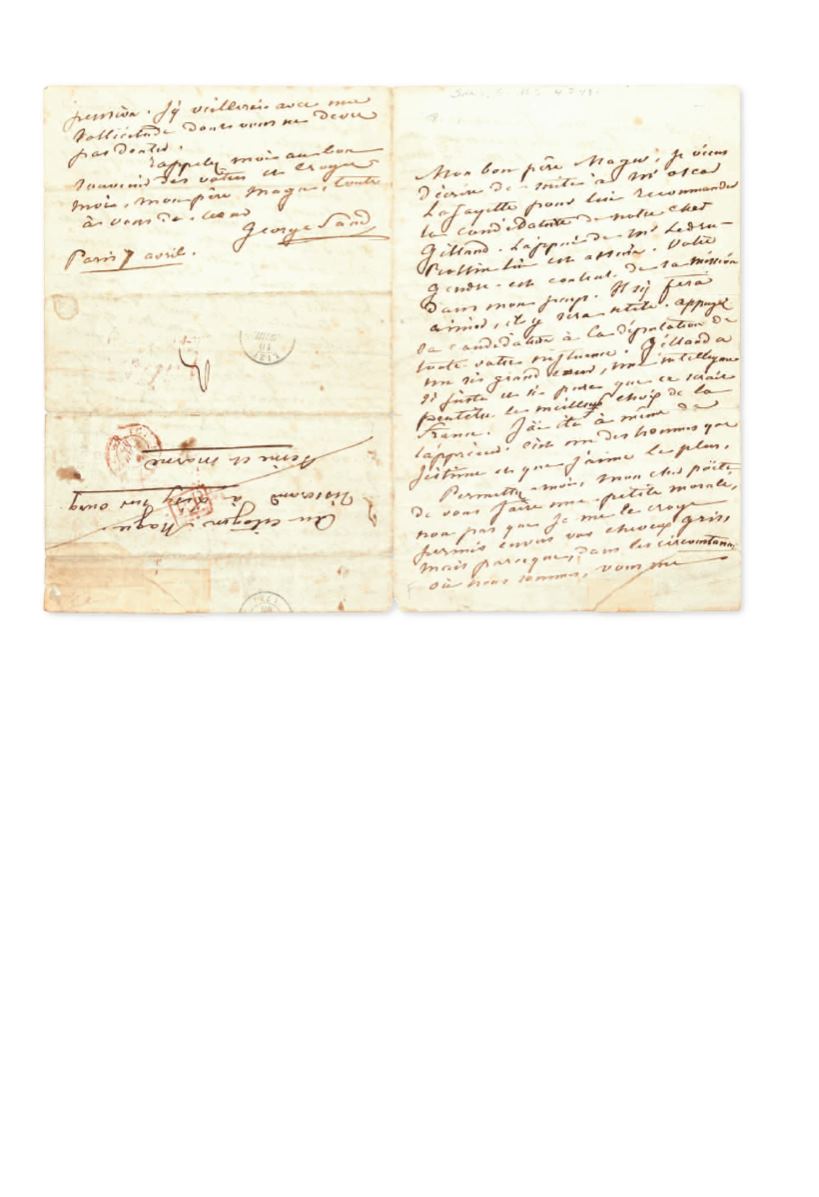 Mon bon père Magu, je viens
d'écrire de suite à Mr Oscar
Lafayette pour lui recommander
la candidature de notre cher
Gilland. L'appui de Mr Ledru-
Rollin lui est assuré. Votre
gendre est content de sa mission
dans mon pays. Il s'y fera
aimer, il y sera utile. appuyez
sa candidature à la députation de
toute votre influence. Gilland a
un si grand cœur, une intelligence
si juste et si pure que ce serait
peutêtre le meilleur choix de la
France. J'ai été à même de
l'apprécier. C'est un des hommes que
j'estime et que j'aime le plus.
Permettez-moi, mon cher poëte
de vous faire une petite morale,
non pas que je me le croye
permis envers vos cheveux gris,
mais parceque, dans les circonstances
où nous sommes, vous me
pension. J'y veillerai avec une
sollicitude dont vous ne devez
pas douter.
rappelez moi au bon
souvenir des vôtres et croyez
moi, mon père Magu, toute
à vous de cœur
George Sand
Paris 7 avril.
Au citoyen Magu
Tisserand à Lizy sur ourcq
Seine et marne